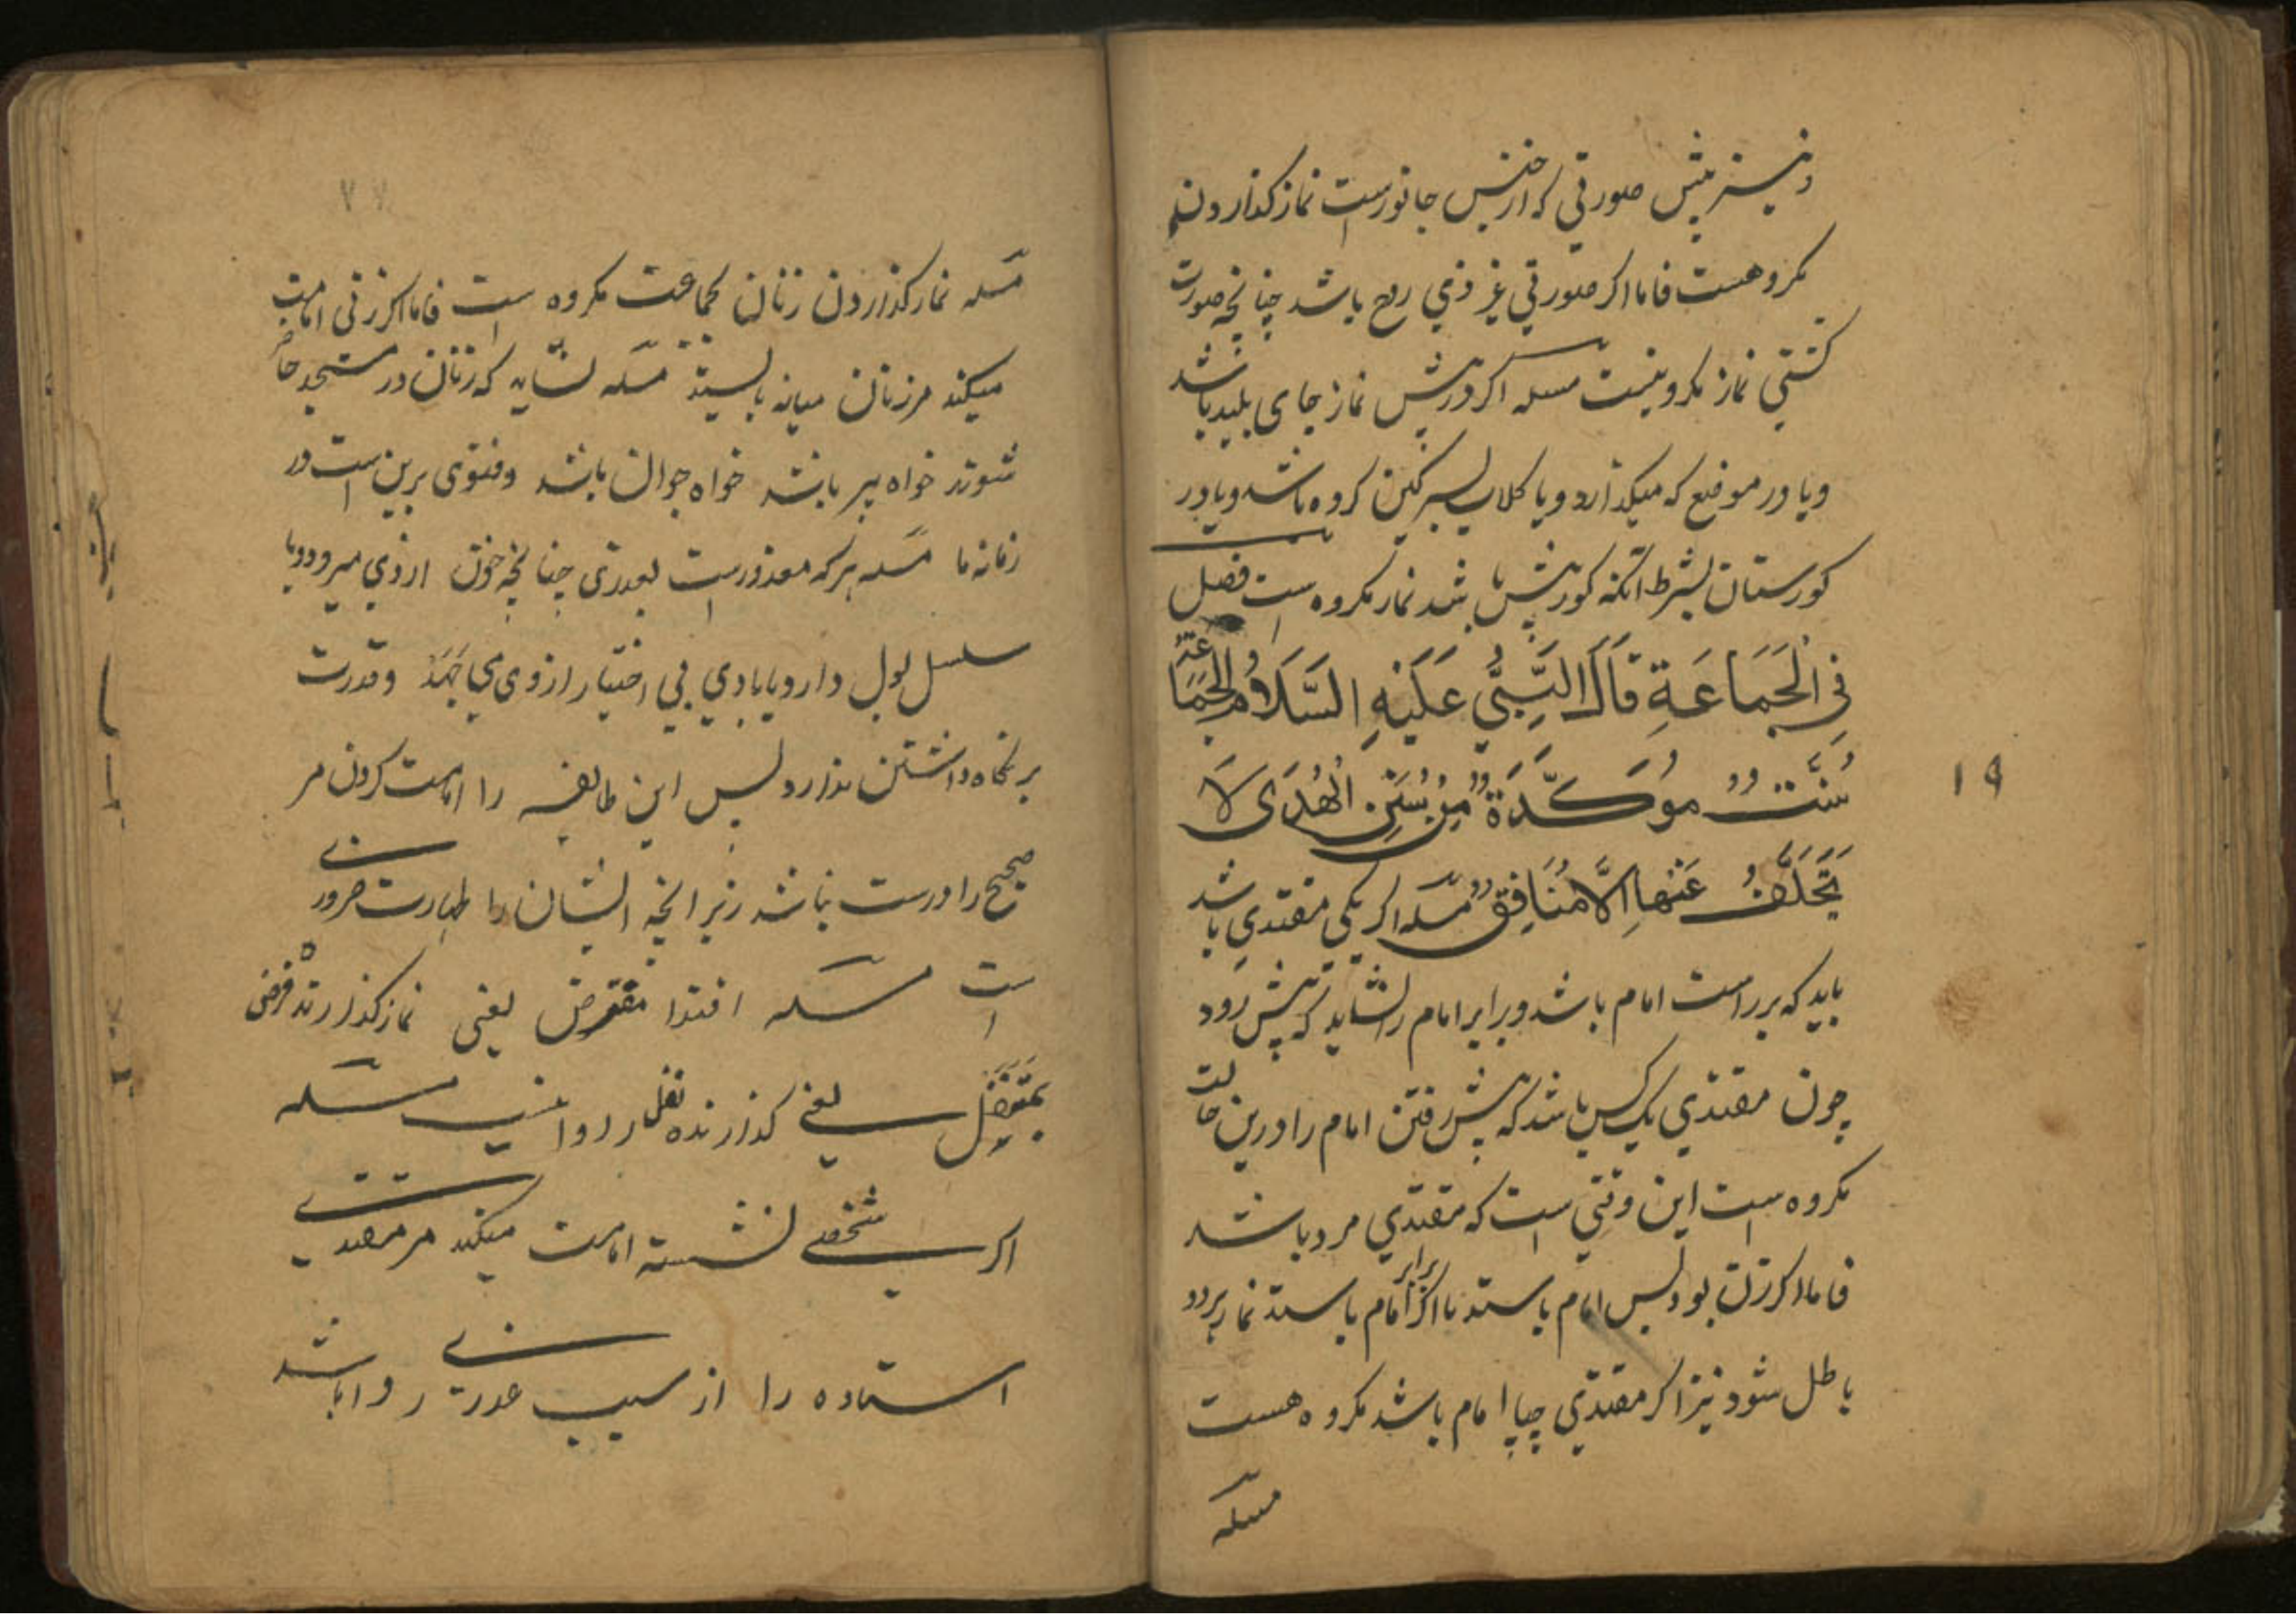 ونیز پیش صورتی که از جنس جانورست نماز کذاردن
مکروهست فاما اکر صورتی غیر ذی روح باشد چنانچه صورت
کشتی نماز مکروه نیست مسله اکر در پیش نماز جای پلید باشد
ویا در موضع که میکذارد ویا کلابه بسرکین کرده باشد ویا در
کورستان بشرط انکه کور پیش باشد نماز مکروه است فصل
فِی الْجَمَاعَةِ قَالَ النَّبِیُّ عَلَیْهِ السَّلَامُ الْجَمَاعَةُ
سُنَّتٌ مُوَکَّدَةٌ مِنْ سُنَنِ الْهُدَی لَا
یَتَخَلَّفُ عَنْهَا اِلَّا مُنَافِقٌ مسله اکر یکی مقتدی باشد
باید که بر راست امام باشد وبرابر امام را نشاید که پیش رود
چون مقتدی یک کس باشد که پیش رفتن امام را درین حالت
مکروه است این وقتی است که مقتدی مرد باشد
فاما اکر زن بود پس امام باستد تا اکر برابر امام باستد نماز هر دو
باطل شود نیز اکر مقتدی چپا امام باشد مکروه هست
مسله
۱۹
۲۷
مسله نماز کذاردن زنان بجماعت مکروه است فاما اکر زنی امامت
میکند مر زنان میانه بایستد مسله نشاید که زنان در مسجد حاضر
شوند خواه پیر باشد خواه جوان باشد وفتوی برین است در
زمانه ما مسله هرکه معذورست بعذری چنانچه خون از وی میرود ویا
سلسل بول دارد ویا بادی بی اختیار از وی می جهد وقدرت
بر نکاه داشتن ندارد پس این طایفه را امامت کردن مر
صحیح را درست نباشد زیرانچه ایشان را طهارت ضروری
است مسله اقتدا مفترض یعنی نماز کذارنده فرض
بمتنفل یعنی کذارنده نفل را روا نیست مسله
اکر شخصی نشسته امامت میکند مر مقتدی
استاده را از سبب عذری روا باشد